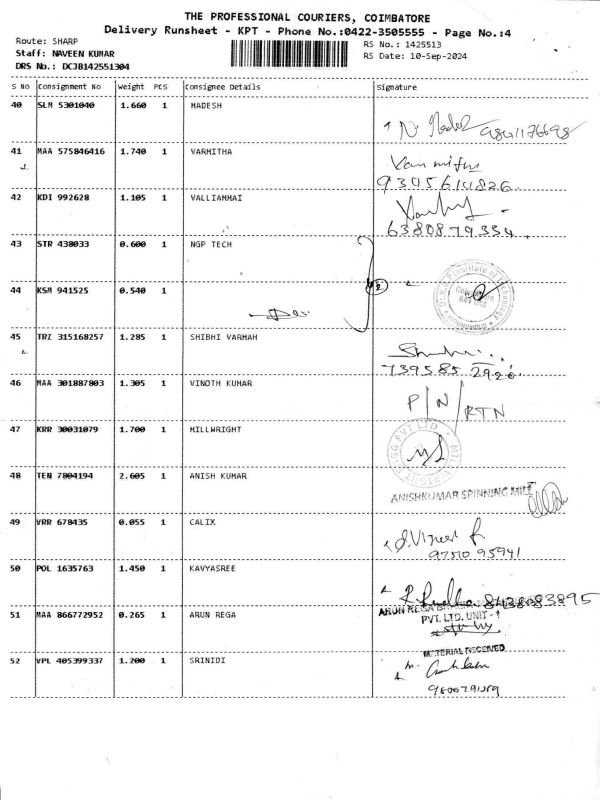 THE PROFESSIONAL COURIERS, COIMBATORE
Delivery Runsheet - KPT - Phone No.:0422-3505555 - Page No.:4
Route: SHARP
Staff: NAVEEN KUMAR
DRS No.: DCJB142551304
RS No.: 1425513
RS Date: 10-Sep-2024
S No Consignment No Weight PCS Consignee Details Signature
40 SLM 5301040 1.660 1 MADESH
41 MAA 575846416 1.740 1 VARMITHA
9345614826
42 KDI 992628 1.105 1 VALLIAMMAI
6380879334
43 STR 438033 0.600 1 NGP TECH
44 KSM 941525 0.540 1
2
Institute of Technology
45 TRZ 315168257 1.285 1 SHIBHI VARMAH
739585 2920
46 MAA 301887803 1.305 1 VINOTH KUMAR P/N/RTN
47 KRR 30031079 1.700 1 MILLWRIGHT
PVT LTD
48 TEN 7804194 2.605 1 ANISH KUMAR
ANISHKUMAR SPINNING MILL
49 VRR 678435 0.055 1 CALIX
97510 95941
50 POL 1635763 1.450 1 KAVYASREE
8438083895
51 MAA 866772952 0.265 1 ARUN REGA
ARUN REGA
PVT. LTD. UNIT - 1
MATERIAL RECEIVED
52 VPL 405399337 1.200 1 SRINIDI